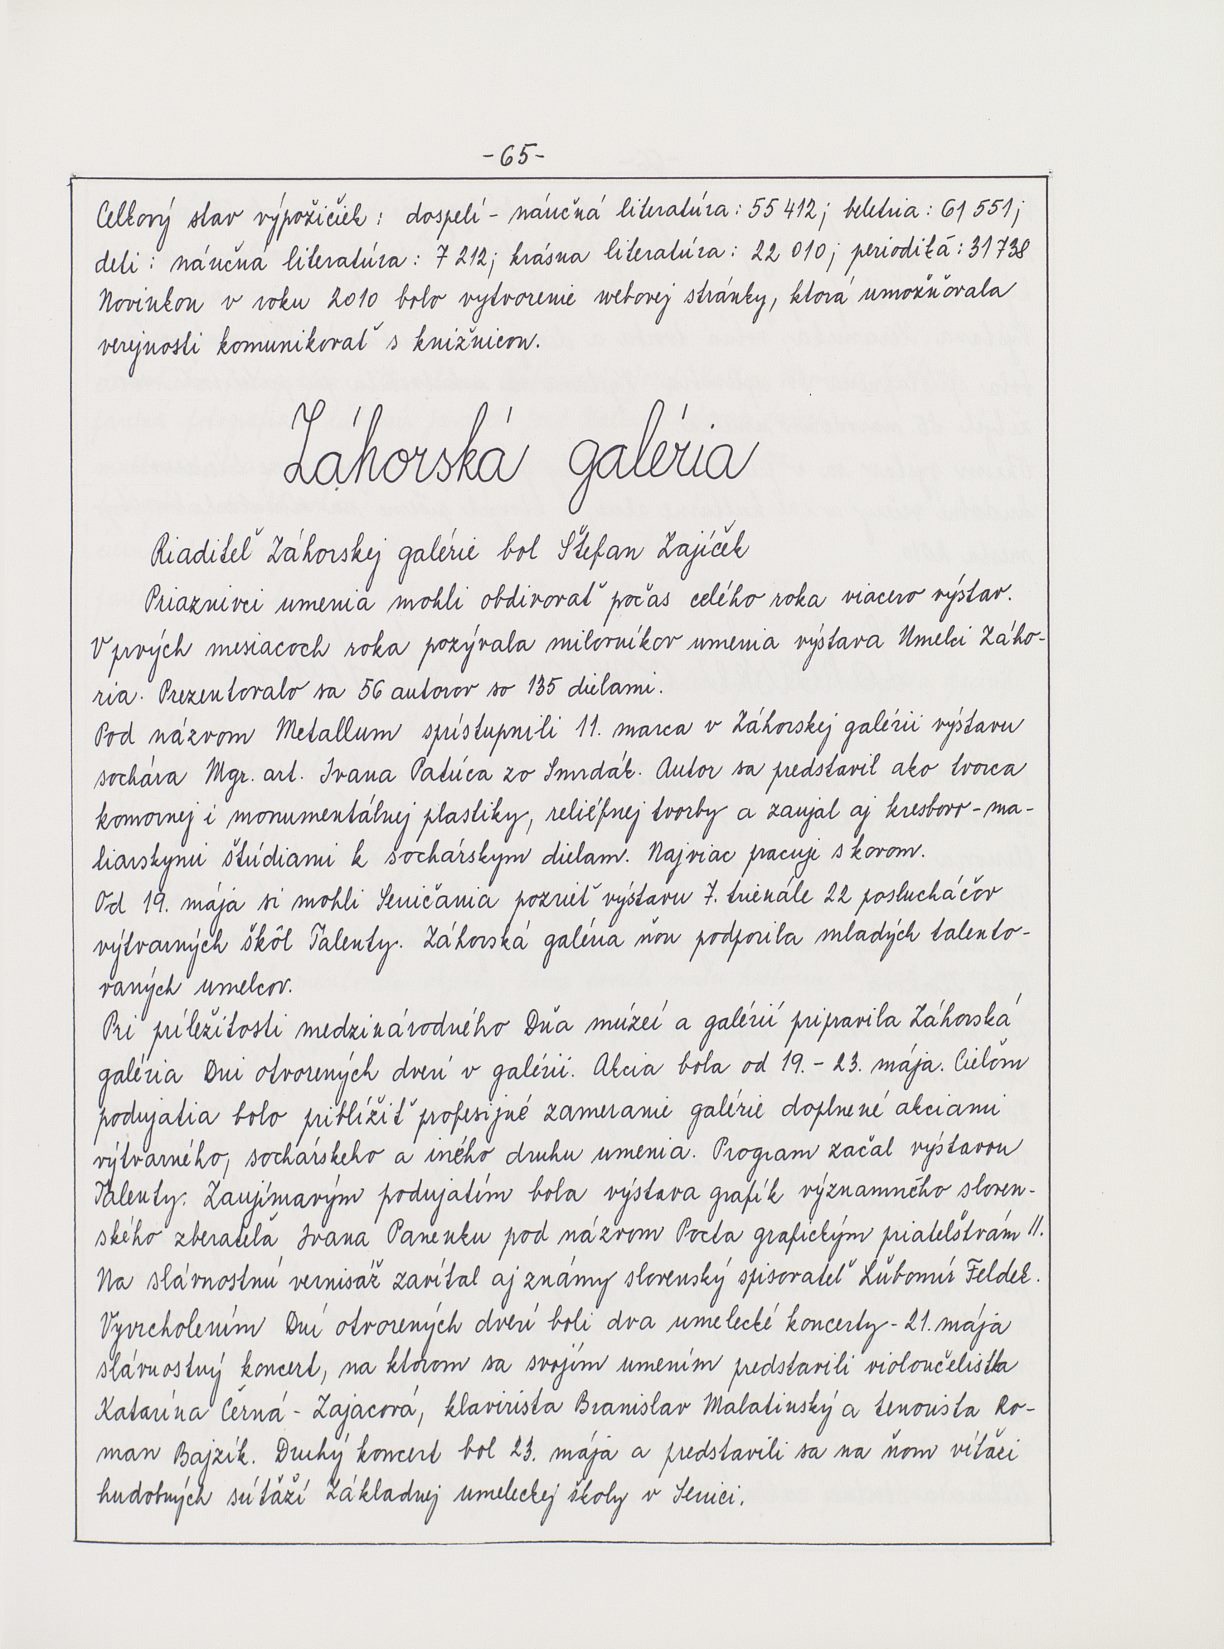 -65-
Celkový stav výpožičiek: dospelí - náučná literatúra: 55 412; beletria: 61 551;
deti: náučná literatúra: 7 212; krásna literatúra: 22 010; periodiká: 31 738
Novinkou v roku 2010 bolo vytvorenie webovej stránky, ktorá umožňovala
verejnosti komunikovať s knižnicou.
Záhorská galéria
Riaditeľ Záhorskej galérie bol Štefan Zajíček
Priaznivci umenia mohli obdivovať počas celého roka viacero výstav.
V prvých mesiacoch roka pozývala milovníkov umenia výstava Umelci Záho-
ria. Prezentovalo sa 56 autorov so 135 dielami.
Pod názvom Metallum sprístupnili 11. marca v Záhorskej galérii výstavu
sochára Mgr. art. Ivana Patúca zo Smrdák. Autor sa predstavil ako tvorca
komornej i monumentálnej plastiky, reliéfnej tvorby a zaujal aj kresbovo-ma-
liarskymi štúdiami k sochárskym dielam. Najviac pracuje s kovom.
Od 19. mája si mohli Seničania pozrieť výstavu 7. trienále 22 poslucháčov
výtvarných škôl Talenty. Záhorská galéria ňou podporila mladých talento-
vaných umelcov.
Pri príležitosti medzinárodného Dňa múzeí a galérií pripravila Záhorská
galéria Dni otvorených dverí v galérii. Akcia bola od 19. - 23. mája. Cieľom
podujatia bolo priblížiť profesijné zameranie galérie doplnené akciami
výtvarného, sochárskeho a iného druhu umenia. Program začal výstavou
Talenty. Zaujímavým podujatím bola výstava grafík významného sloven-
ského zberateľa Ivana Panenku pod názvom Pocta grafickým priateľstvám II.
Na slávnostnú vernisáž zavítal aj známy slovenský spisovateľ Ľubomír Feldek.
Vyvrcholením Dní otvorených dverí boli dva umelecké koncerty - 21. mája
slávnostný koncert, na ktorom sa svojím umením predstavili violončelistka
Katarína Černá - Zajacová, klavirista Branislav Malatinský a tenorista Ro-
man Bajzík. Druhý koncert bol 23. mája a predstavili sa na ňom víťazi
hudobných súťaží Základnej umeleckej školy v Senici.